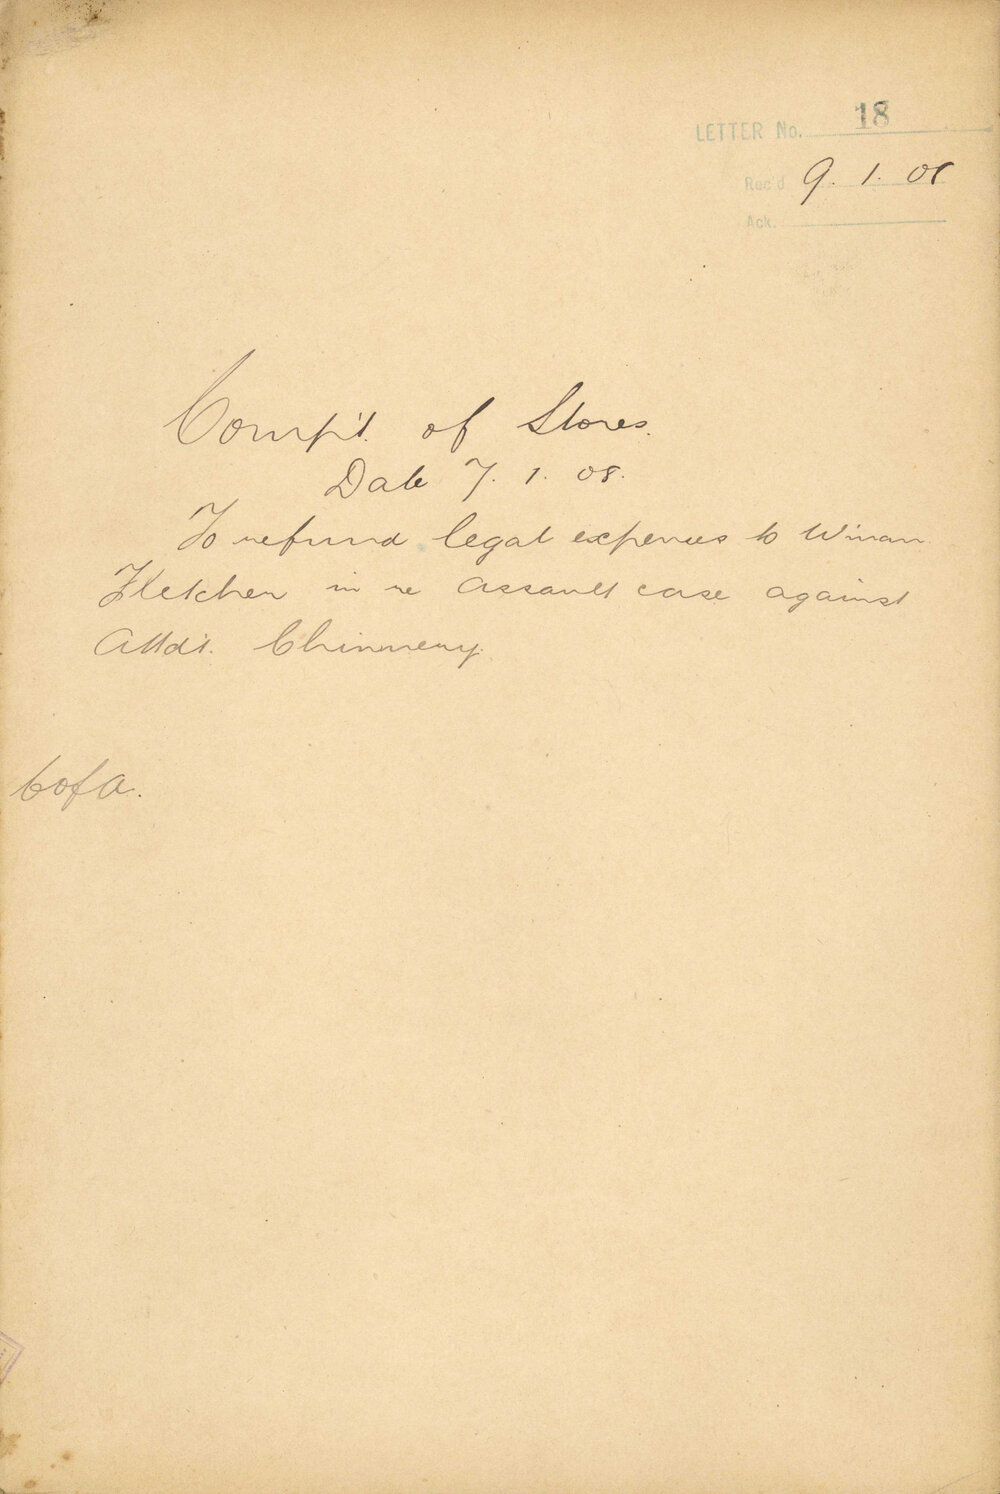 LETTER No. 18
Rec'd 9. 1. 08
Ack.
Compt. of Stores.
Date 7. 1. 08.
To refund legal expenses to
Fletcher in re assault case against
Attdt. Chinnery.
C of A.